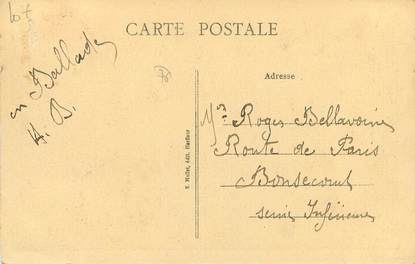 lot
CARTE POSTALE
en Ballade
H. B.
Adresse
Mr Roger Bellavoine
Route de Paris
Bonsecours
Seine Inférieure
édit. Harfleur